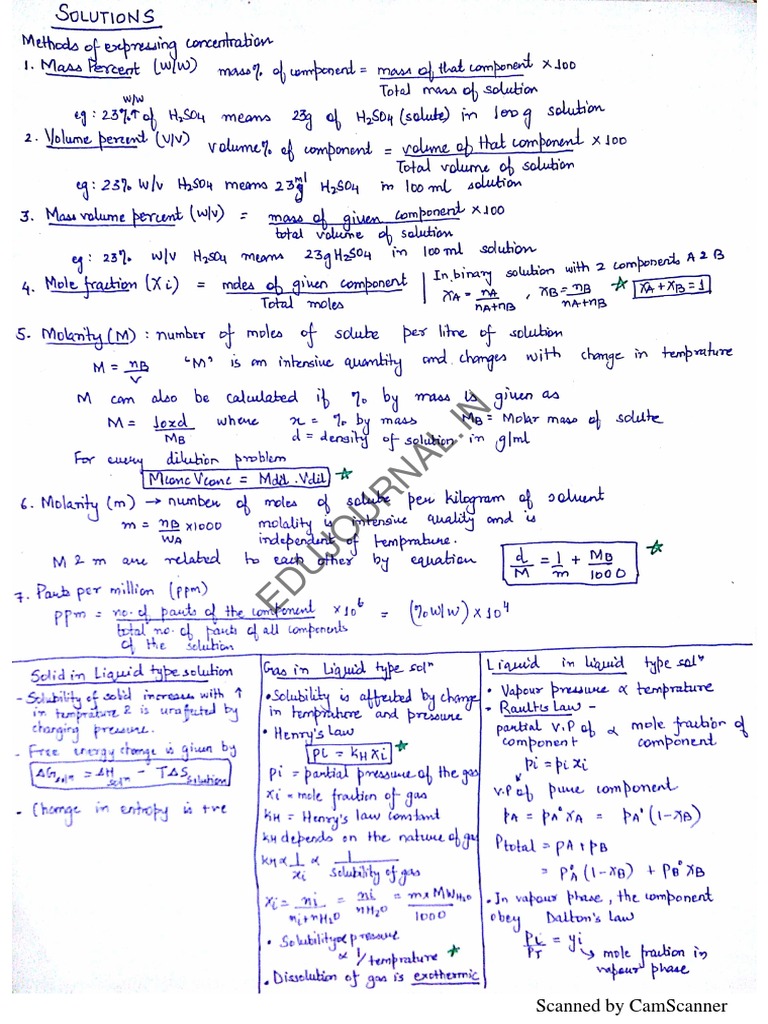 SOLUTIONS
Methods of expressing concentration
1. Mass Percent (W/W) mass% of component = mass of that component / Total mass of solution ×100
W/W
eg: 23%↑ of H₂SO₄ means 23g of H₂SO₄ (solute) in 100g solution
2. Volume percent (V/V) Volume% of component = volume of that component / Total volume of solution ×100
eg: 23% W/V H₂SO₄ means 23 ml H₂SO₄ in 100 ml solution
3. Mass volume percent (W/V) = mass of given component / total volume of solution ×100
eg: 23% W/V H₂SO₄ means 23g H₂SO₄ in 100ml solution
4. Mole fraction (Xi) = moles of given component / Total moles
In binary solution with 2 components A & B
xA = nA / nA+nB , xB = nB / nA+nB ☆ xA + xB = 1
5. Molarity (M) : number of moles of solute per litre of solution
M = nB / V "M" is an intensive quantity and changes with change in temprature
M can also be calculated if % by mass is given as
M = 10xd / MB where x = % by mass MB = Molar mass of solute
d = density of solution in g/ml
For every dilution problem
Mconc Vconc = Mdil . Vdil ☆
6. Molarity (m) → number of moles of solute per kilogram of solvent
m = nB / WA ×1000 molality is intensive quality and is
independent of temprature.
M & m are related to each other by equation d/M = 1/m + MB/1000 ☆
7. Parts per million (ppm)
ppm = no. of parts of the component / total no. of parts of all components of the solution ×10⁶ = (% W/W) × 10⁴
EDUJOURNAL.IN
Solid in Liquid type solution
- Solubility of solid increases with ↑
in temprature & is unaffected by
changing pressure.
- Free energy change is given by
ΔGsoln = ΔHsoln - TΔSsolution
- Change in entropy is +ve
Gas in Liquid type solⁿ
• Solubility is affected by change
in temprature and pressure
• Henry's Law
pi = kH xi ☆
pi = partial pressure of the gas
xi = mole fraction of gas
kH = Henry's law constant
kH depends on the nature of gas
kH ∝ 1/xi ∝ 1 / solubility of gas
xi = ni / ni+nH₂O = ni / nH₂O = m x MWH₂O / 1000
• Solubility ∝ pressure
∝ 1/temprature ☆
• Dissolution of gas is exothermic
Liquid in liquid type solⁿ
• Vapour pressure ∝ temprature
• Raults Law -
partial V.P of component ∝ mole fraction of component
pi = pi xi
V.P of pure component
pA = pA° xA = pA° (1-xB)
Ptotal = pA + pB
= pA° (1-xB) + pB° xB
• In vapour phase, the component
obey Dalton's Law
pi / PT = yi
↳ mole fraction in
vapour phase
Scanned by CamScanner